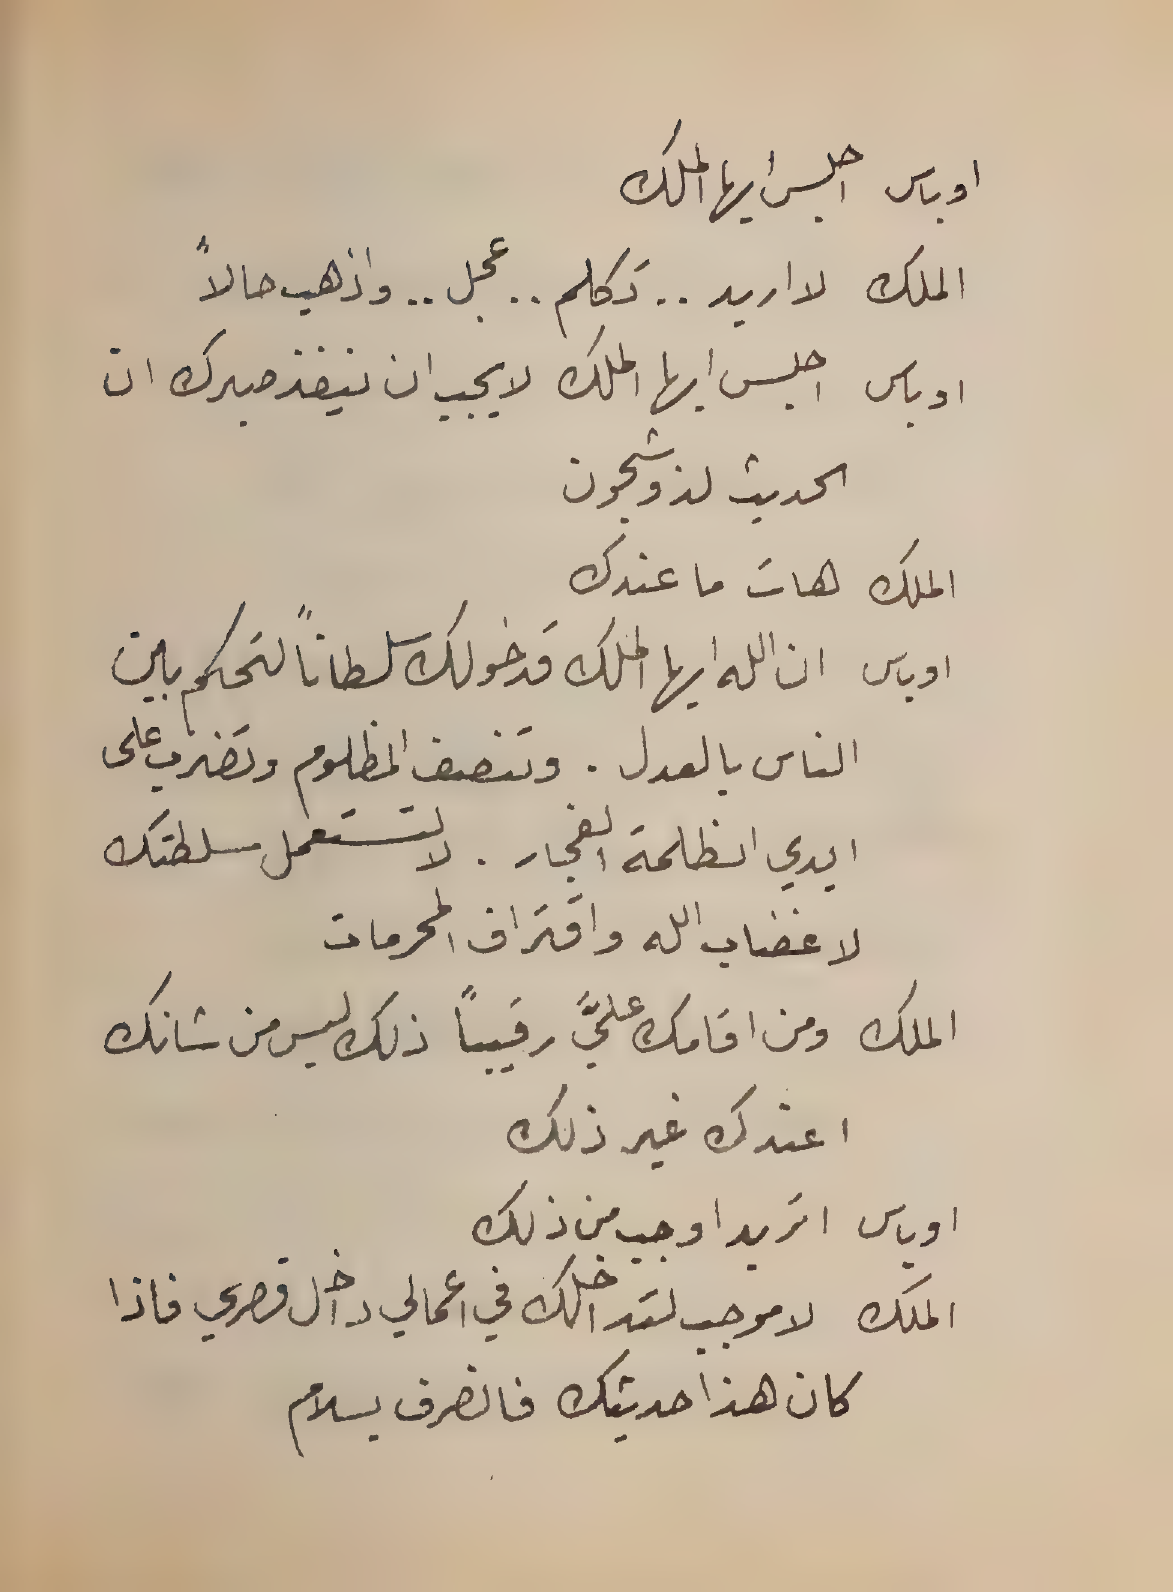 اوباس اجلس ايها الملك
الملك لا اريد .. تكلم .. عجل .. واذهب حالاً
اوباس اجلس ايها الملك لا يجب ان ينفذ صبرك ان
الحديث لذو شجون
الملك هات ما عندك
اوباس ان الله ايها الملك قد خولك سلطاناً لتحكم بين
الناس بالعدل . وتنصف المظلوم وتضرب على
ايدي الظلمة الفجار . لا تستعمل سلطتك
لاغضاب الله واقتراف المحرمات
الملك ومن اقامك عليَّ رقيباً ذلك ليس من شانك
اعندك غير ذلك
اوباس اتريد اوجب من ذلك
الملك لا موجب لتداخلك في اعمالي داخل قصري فاذا
كان هذا حديثك فانصرف بسلام